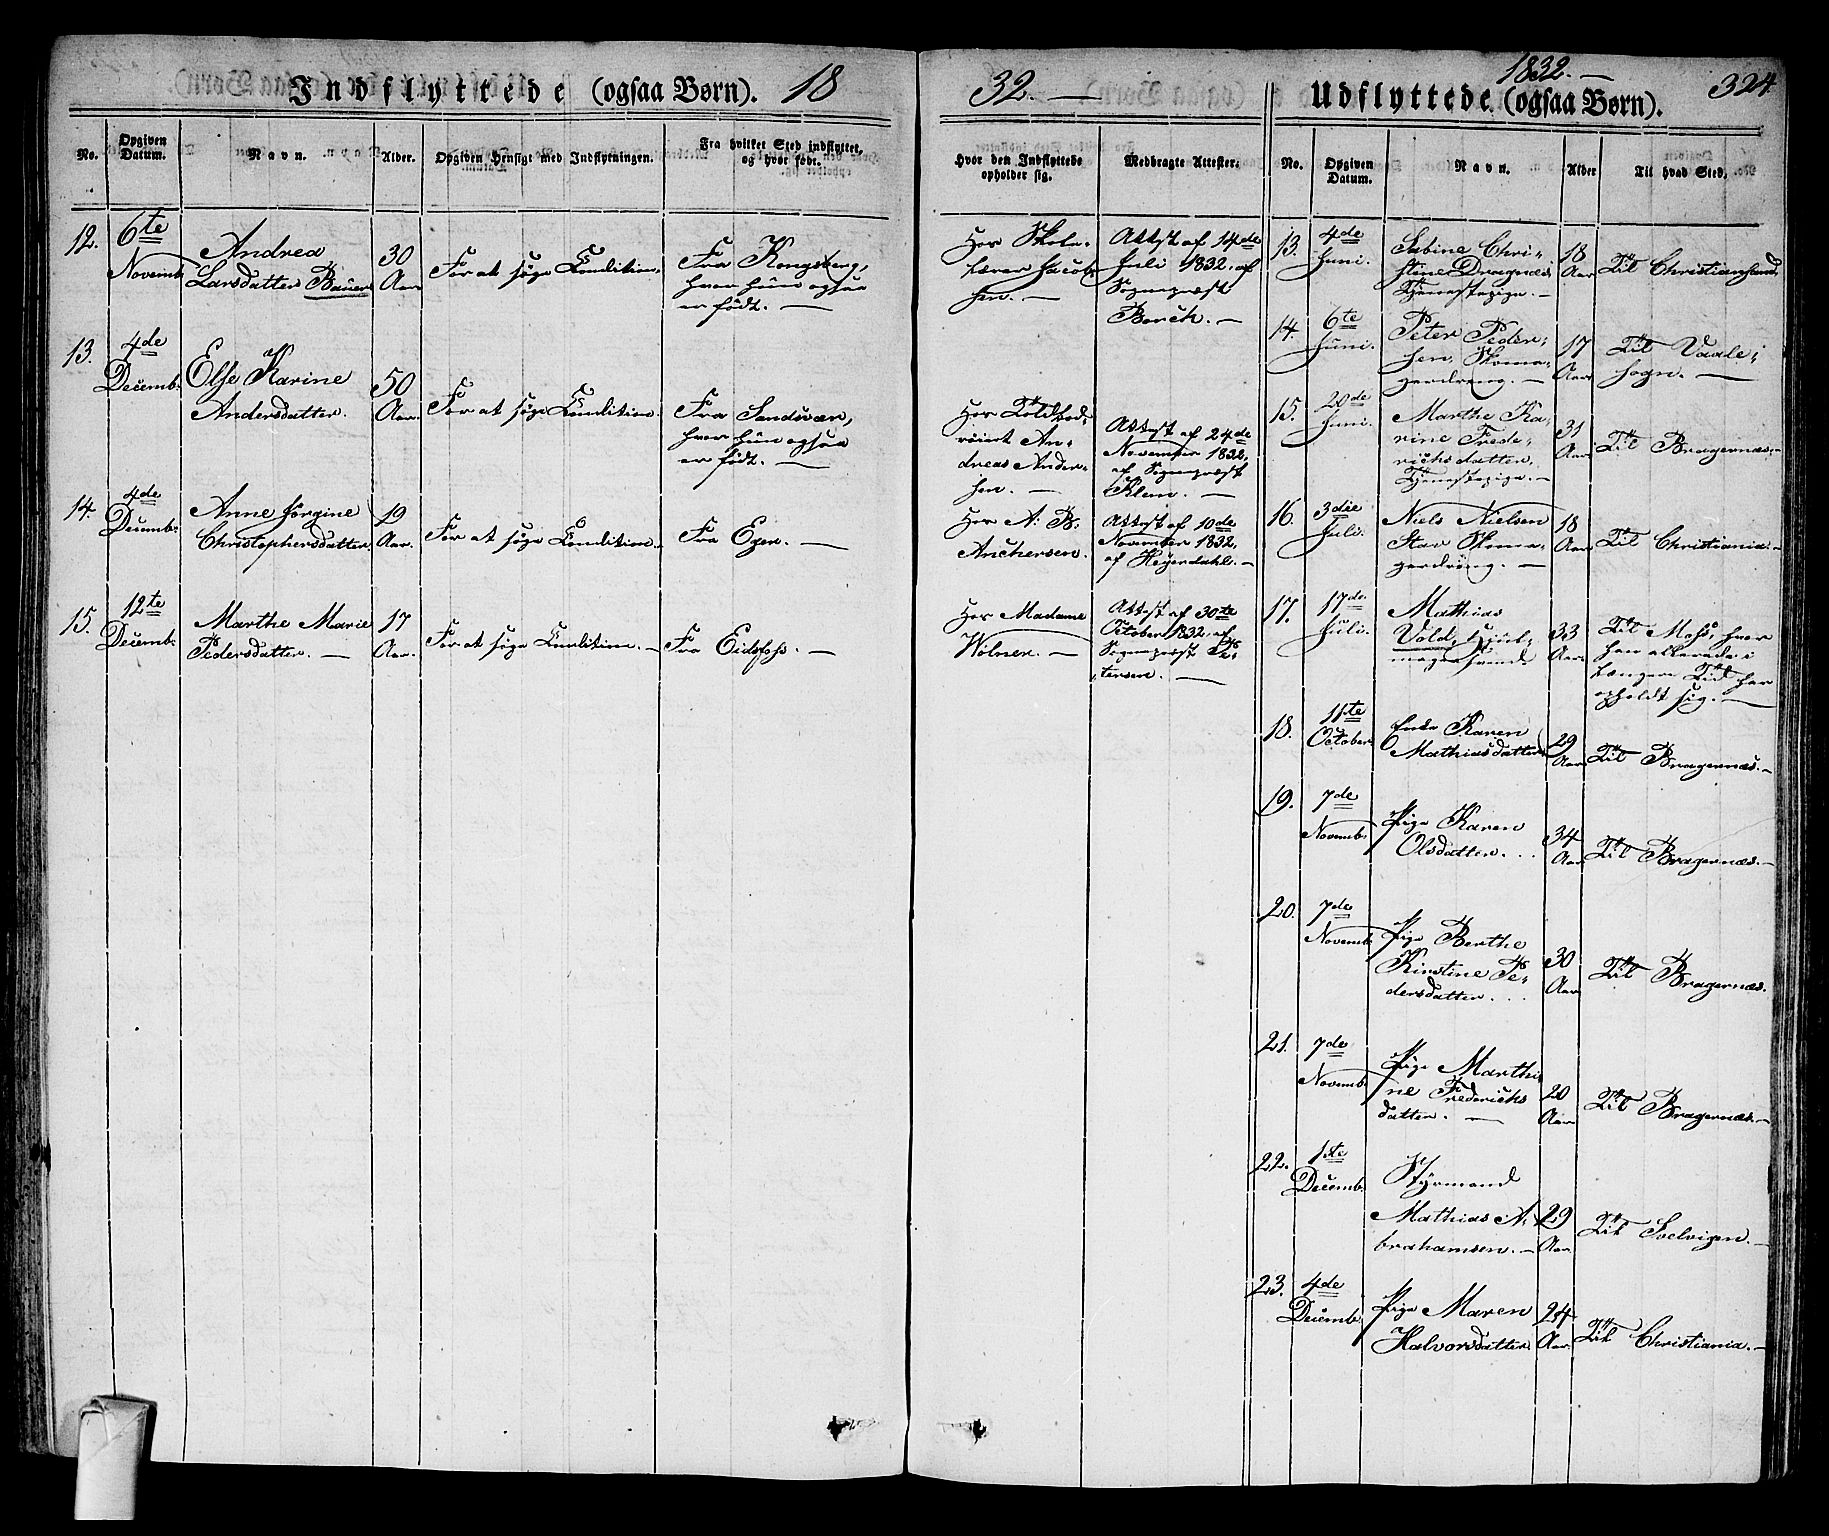 Indflyttede (ogsaa Børn). 18
No.
Opgiven
Datum.
Navn.
Alder.
Opgiven Hensigt med Indflytningen.
Fra hvilket Sted indflyttet,
og hvor født.
12. 6te
Novemb:
Andrea
Larsdatter Bauer
30
Aar.
For at søge Condition.
Fra Kongsberg,
hvor hun ogsaa
er født. —
13. 4de
Decemb:
Else Karine
Andersdatter.
50
Aar.
For at søge Condition.
Fra Sandsvær,
hvor hun ogsaa
er født. —
14. 4de
Decemb:
Anne Jørgine
Christophersdatter.
19
Aar.
For at søge Condition.
Fra Eger. —
15. 12te
Decemb:
Marthe Marie
Pedersdatter. —
17
Aar.
For at søge Condition. —
Fra Eidsfoss. —
32. —
Hvor den Indflyttede
opholder sig.
Medbragte Attester.
Hos Skole-
lærer Jacob-
sen. —
Attest af 14de
Juli 1832, af
Sognepræst
Borch. —
Hos Toldbod-
roiert An-
dreas Ander-
sen. —
Attest af 24de
November 1832,
af Sognepræst
Klem. —
Hos A: B.
Anchersen.
Attest af 10de
November 1832,
af Heyerdahl. —
Hos Madame
Wølner. —
Attest af 30te
October 1832, af
Sognepræst Pe-
tersen. —
1832. —
324
Udflyttede (ogsaa Børn).
No.
Opgiven
Datum.
Navn.
Alder
Til hvad Sted.
13. 4de
Juni.
Sabine Chri-
stine Dragnæs
Tjenestepige. —
18
Aar
Til Christiansand
14. 6te
Juni.
Peter Peder-
sen, Skoma-
gerdreng. —
17
Aar.
Til Vaale-
sogn. —
15. 20de
Juni.
Marthe Ka-
rine Frede-
richsdatter,
Tjenestepige. —
31
Aar.
Til Bragernæs. —
16. 3die
Juli.
Niels Nielsen
Stav Skoma-
gerdreng. —
18
Aar
Til Christiania. —
17. 17de
Juli.
Mathias
Vold, Hjul-
magersvend
33
Aar
Til Moss, hvor
han allerede i
længere Tid har
opholdt sig. —
18. 11te
October
Enke Karen
Mathiasdatter
29
Aar
Til Bragernæs. —
19. 7de
Novemb:
Pige Karen
Olsdatter. . .
34
Aar
Til Bragernæs. —
20. 7de
Novemb:
Pige Berthe
Kirstine Pe-
dersdatter. . .
30
Aar
Til Bragernæs.
21. 7de
Novemb:
Pige Marthi
ne Frederichs
datter. —
20
Aar
Til Bragernæs. —
22. 1ste
Decemb:
Styrmand
Mathias A-
brahamsen. —
29
Aar
Til Svelvigen. —
23. 4de
Decemb:
Pige Maren
Halvorsdatter
24
Aar.
Til Christiania. —